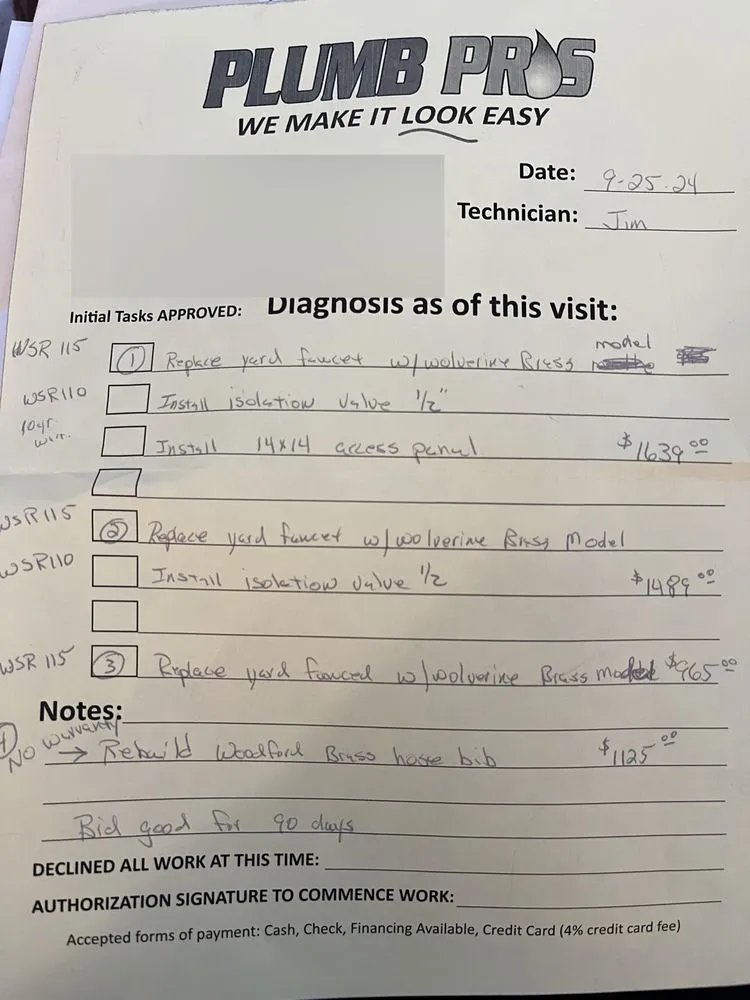 PLUMB PROS
WE MAKE IT LOOK EASY
Date: 9-25-24
Technician: Jim
Initial Tasks APPROVED: Diagnosis as of this visit:
WSR 115 ① Replace yard faucet w/ wolverine Brass model
WSR110 Install isolation valve 1/2"
10yr warr. Install 14x14 access panel $1639.00
WSR115 ② Replace yard faucet w/ wolverine Brass Model
WSR110 Install isolation valve 1/2 $1489.00
WSR 115 ③ Replace yard fauced w/ wolverine Brass model $965.00
Notes:
④ No warranty → Rebuild Woodford Brass hose bib $1125.00
Bid good for 90 days
DECLINED ALL WORK AT THIS TIME:
AUTHORIZATION SIGNATURE TO COMMENCE WORK:
Accepted forms of payment: Cash, Check, Financing Available, Credit Card (4% credit card fee)